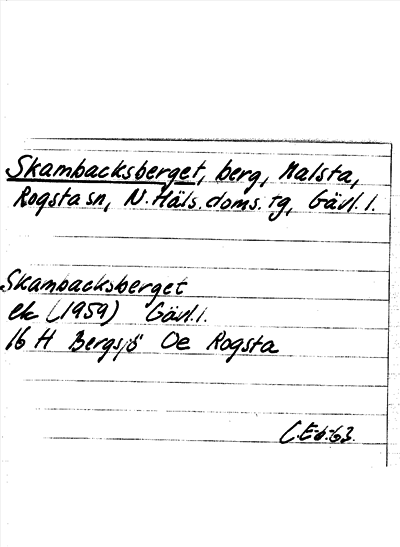 Skambacksberget, berg, Malsta,
Rogsta sn, N. Häls. doms. tg, Gävl. l.
Skambacksberget
ek (1959) Gävl. l.
16 H Bergsjö Oe Rogsta
C.E-b-63.